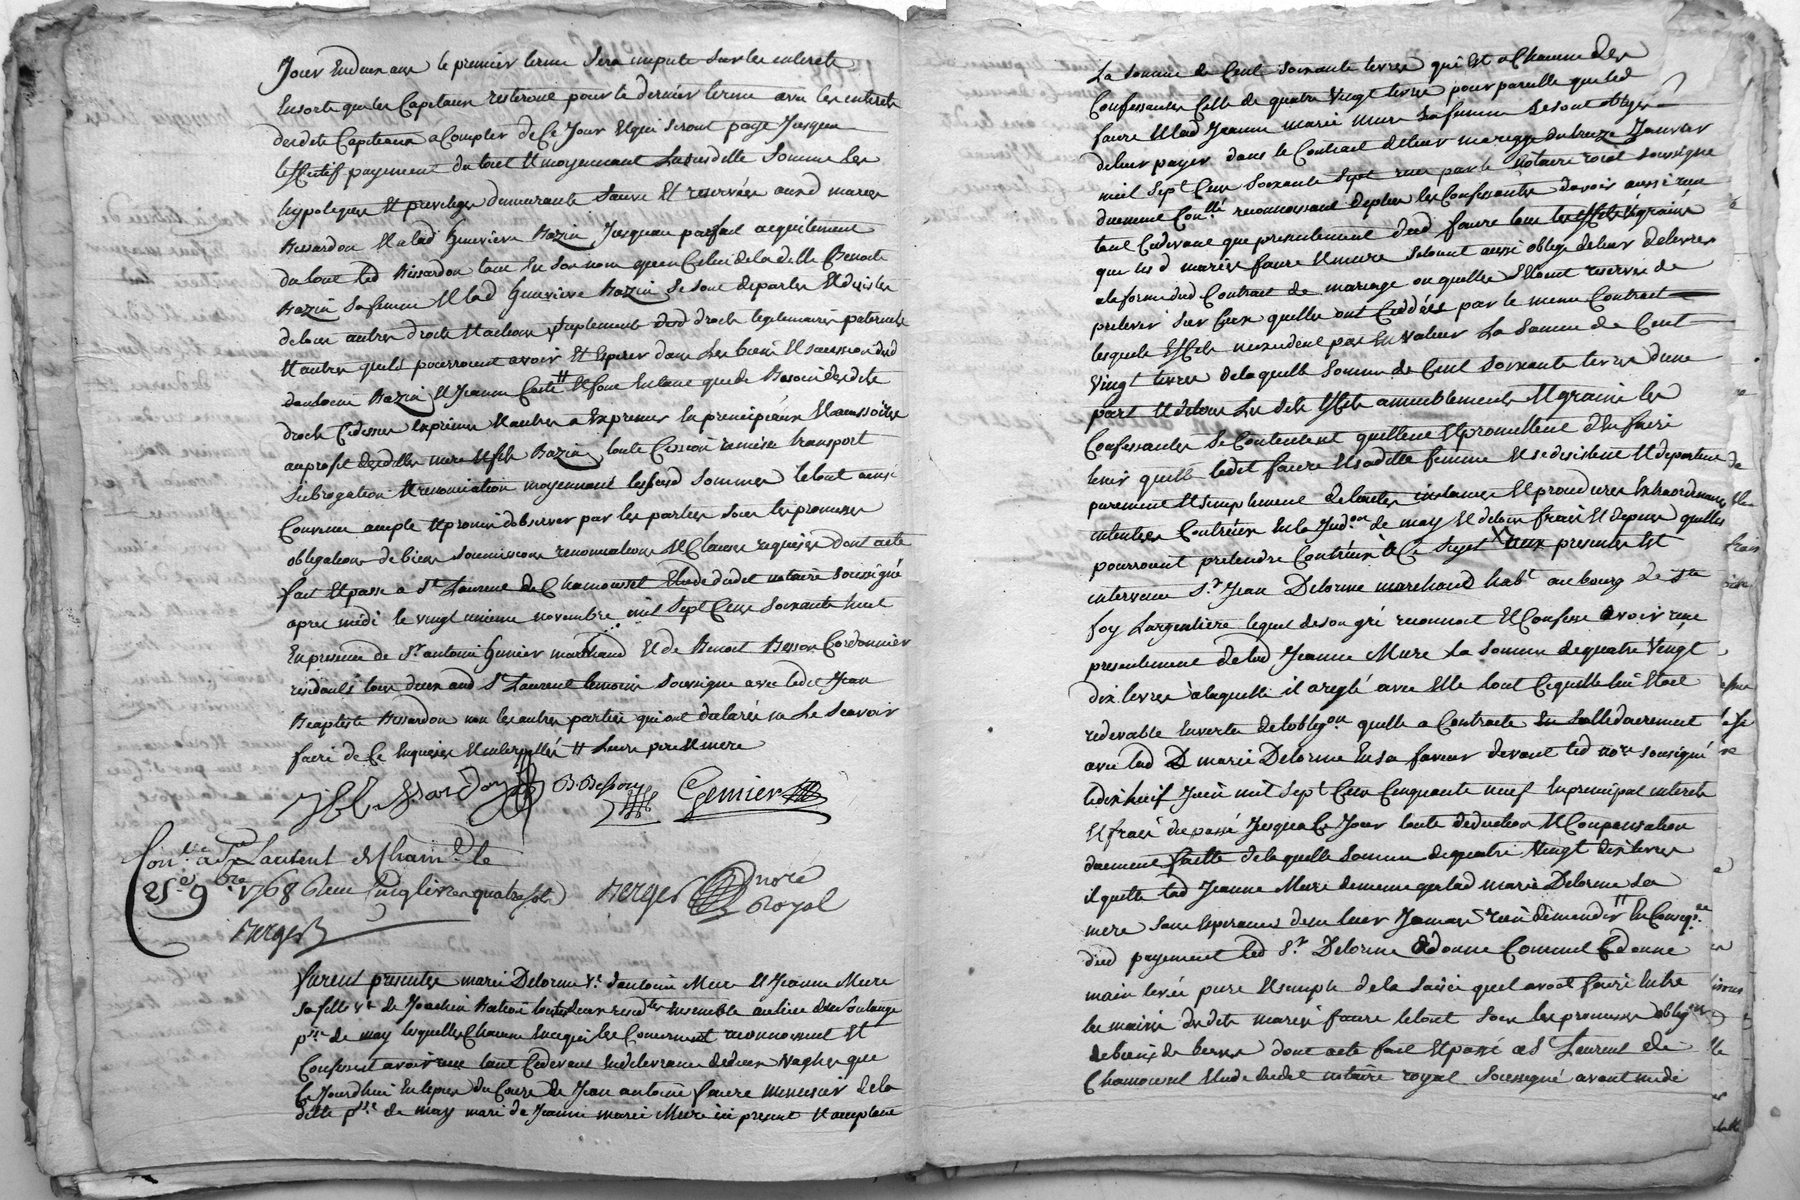 Jour en deux ans le premier terme sera imputé sur les interets
En sorte que les Capitaux resteront pour le dernier terme avec les interets
desdits Capitaux a Compter de Ce Jour et qui seront payé Jusqua
leffectif payement du tout et moyennant la susditte Somme les
hypoteques et privileges demeurants Sauve et reservées auxd mariés
Bissardon et a lad Genevieve Bazin Jusquau parfait acquittement
du tout led Bissardon tant en son nom que en Celui de la ditte Benoite
Bazin sa femme et lad Genevieve Bazin se sont departis et desistés
de tous autres droits et actions Suplement dud droits legitimaires paternels
et autres quels pourroient avoir et Esperer dans les biens et sucession dud
dantoine Bazin et Jeanne Coste # et font en tant que de Besoin desdits
droits Cy dessus Exprimés et autres a Exprimer en principaux et accessoires
au profit desdittes mere et fils Bazin toute Cession remise transport
Subrogation et renonciation moyennant lesdites Sommes le tout ainsi
Convenu accepté et promis dobserver par les parties sous les promesses
obligations de biens soumissions renonciations et Clauses requises dont acte
fait et passé a St Laurent de Chamousset Etude dudit notaire soussigné
apres midi le vingt unieme novembre mil sept Cent Soixante huit
En presence de Sr antoine Genier marchand et de Benoit Besson Cordonnier
residants tous deux aud St Laurent temoins soussignés avec ledit Jean
Baptiste Bissardon non les autres parties qui ont declarés ne le scavoir
faire de Ce Enquises et interpellés # leurs pere et mere
JB Bissardon B. Besson Genier
Con.lé a St Laurent de Cham.t le
25.e 9bre 1768 Reçu Cinq livres quatre sols Berger nore
Royal
Berger
furent presentes marie Delorme Ve dantoine Mure et Jeanne Mure
sa fille Ve de Joachin Bation toutes deux resid.tes ensemble au lieu de
psse de may lesquelles Chacune En ce qui les Concernent reconnoissent et
Confessent avoir reçu tant Cydevant En delivrance de deux Vaches que
Ce Jourdhui En Especes du Cours de Jean antoine faure menusier de la
ditte psse de may mari de Jeanne marie Mure ici present et acceptant
La somme de Cent soixante livres qui Est a Chacune des
Confessantes Celle de quatre Vingt livres pour pareille que led
faure et lad Jeanne marie Mure sa femme se sont obligés
de leur payer dans le Contrat de leur mariage du treize Janvier
mil Sept Cent Soixante Sept reçu par le notaire roial soussigné
duement Con.llé reconnoissant deplus les Confessantes davoir aussi reçu
tant Cydevant que presentement dud faure tous les Effets et grains
que lesd mariés faure et mure setoient aussi obligé de leur delivrer
a la forme dud Contrat de mariage ou quelles setoient reservés de
prelever sur Ceux quelles ont Ceddées par le meme Contrat
lesquels Effets nexcedent pas En valeur la Somme de Cent
Vingt livres de laquelle Somme de Cent Soixante livres dune
part et de tous les dits Effets ameublements et grains les
Confessantes se Contentent quittent et promettent den faire
tenir quitte ledit faure et sa ditte femme et se desistent et departent
purement et simplement de toutes instances et procedures Extraordinaires
intentées Contreux En la Jud.on de may et de tous frais et depens quelles
pourroient pretendre Contreux a Ce Sujet X aux presentes Est
intervenu Sr Jean Delorme marchand habt au bourg de Ste
foy Largentiere lequel de son gré reconnoit et Confesse avoir reçu
presentement de lad Jeanne Mure la somme de quatre Vingt
dix livres a laquelle il a reglé avec elle tout Ce quelle lui Etoit
redevable En vertu de lobligon quelle a Contractée Solidairement
avec lad D marie Delorme En sa faveur devant led nore soussigné
le dix huit Juin mil Sept Cent Cinquante neuf En principal interets
et frais du passé Jusqua Ce Jour toute deduction et Compensation
duement faitte de laquelle somme de quatre Vingt dix livres
il quitte lad Jeanne Mure de meme que lad marie Delorme sa
mere sans Esperance de ne leur Jamais rien demander # En Conseq.ce
dud payement led Sr Delorme donne Comme il donne
main levée pure et simple de la saisie quil avoit fait Entre
les mains desdits mariés faure le tout sous les promesses oblig.ons
de biens de bonne dont acte fait et passé a St Laurent de
Chamousset Etude dudit notaire royal Soussigné avant midi